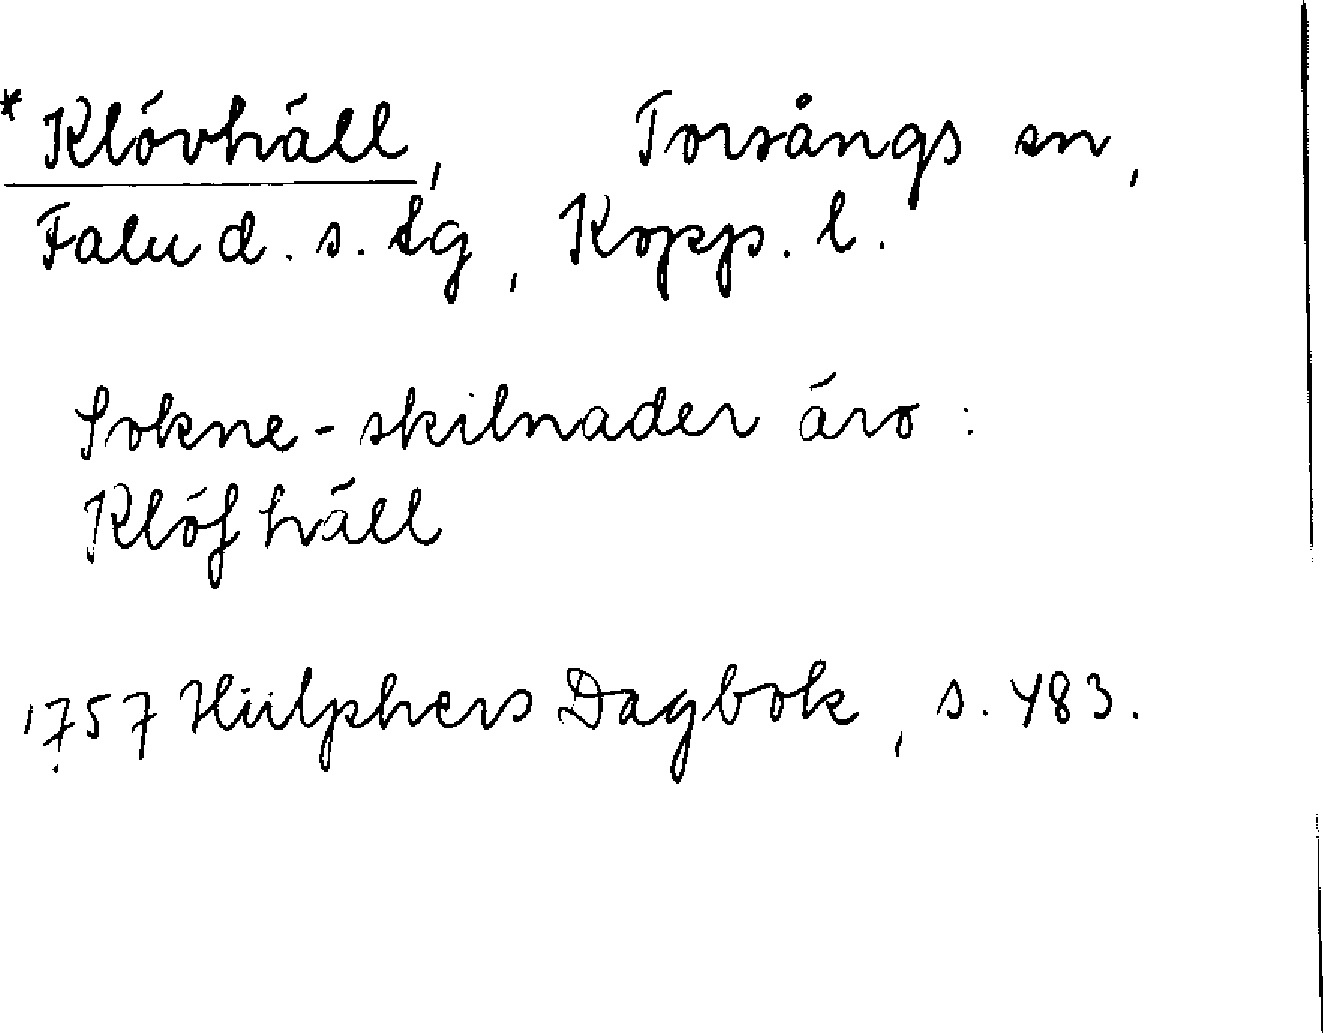 * Klövhäll, Torsångs sn,
Falu d. s. tg, Kopp. l.
Sokne-skilnader äro:
Klöf häll
1757 Hülphers Dagbok, s. 483.